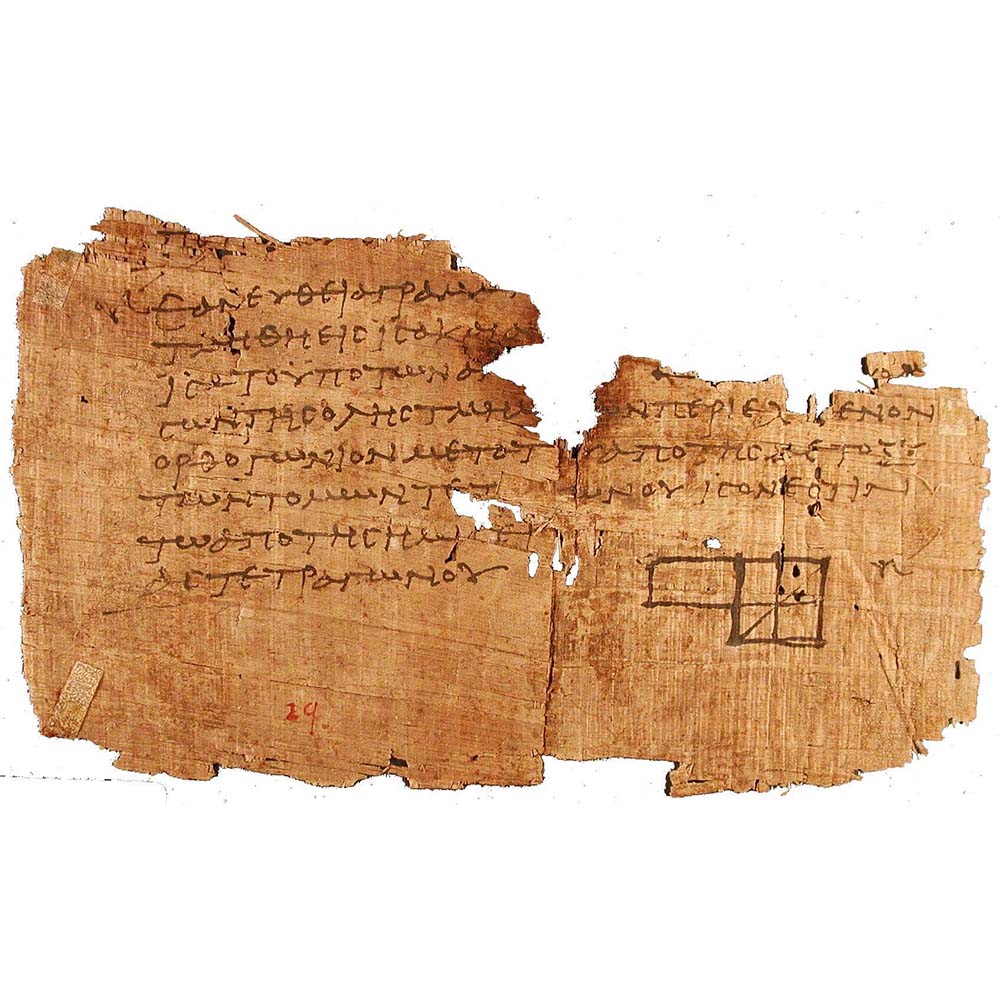 ΕΑΝΕΥΘΕΙΑΓΡΑΜ
ΤΜΗΘΗΕΙϹΙϹΑΚΑΙΑΝ
ΙϹΑΤΟΥΠΟΤΩΝΑ
ϹΩΝΤΗϹΟΛΗϹΤΜΗΜ ΩΝΠΕΡΙΕΧ ΜΕΝΟΝ
ΟΡΘΟΓΩΝΙΟΝΜΕΤΟΤ ΑΠΟΤΗϹΜΕΤΟΞΥ
ΤΩΝΤΟΜΩΝΤΕΤ ΩΝΟΥΙϹΟΝΕϹΤΙΝ
ΤΩΑΠΟΤΗϹΗΜΙϹΕΙ
ΑϹΤΕΤΡΑΓΩΝΟΥ
29